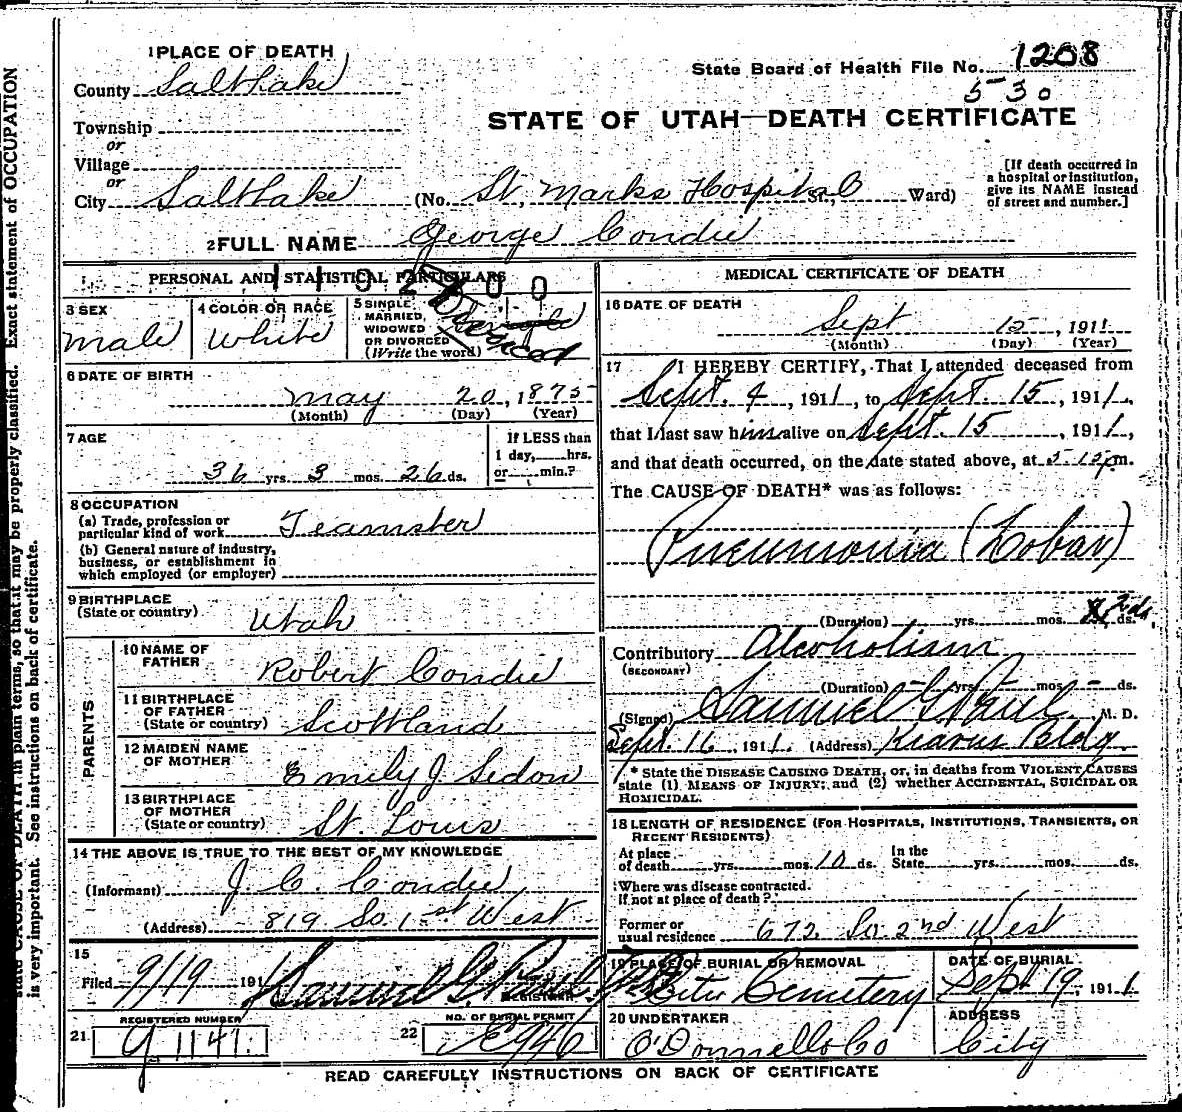 1 PLACE OF DEATH
County Salt Lake
State Board of Health File No. 1208
530
STATE OF UTAH—DEATH CERTIFICATE
Township
or
Village
or
City Salt Lake (No. St. Marks Hospital St., Ward)
[If death occurred in a hospital or institution, give its NAME instead of street and number.]
2 FULL NAME George Condie
PERSONAL AND STATISTICAL PARTICULARS
3 SEX
male
4 COLOR OR RACE
White
5 SINGLE, MARRIED, WIDOWED OR DIVORCED (Write the word)
Divorced
6 DATE OF BIRTH
May 20, 1875
(Month) (Day) (Year)
7 AGE
36 yrs. 3 mos. 26 ds.
If LESS than 1 day, hrs. or min.?
8 OCCUPATION
(a) Trade, profession or particular kind of work Teamster
(b) General nature of industry, business, or establishment in which employed (or employer)
9 BIRTHPLACE
(State or country) Utah
PARENTS
10 NAME OF FATHER Robert Condie
11 BIRTHPLACE OF FATHER (State or country) Scottland
12 MAIDEN NAME OF MOTHER Emily J. Sedon
13 BIRTHPLACE OF MOTHER (State or country) St. Louis
14 THE ABOVE IS TRUE TO THE BEST OF MY KNOWLEDGE
(Informant) J C. Condie
(Address) 819 So. 1st West
15
Filed 9/19 191 Samuel G. Paul
REGISTRAR
REGISTERED NUMBER
21. 91141
NO. OF BURIAL PERMIT
22 E946
MEDICAL CERTIFICATE OF DEATH
16 DATE OF DEATH
Sept 15, 1911
(Month) (Day) (Year)
17 I HEREBY CERTIFY, That I attended deceased from
Sept. 4, 1911, to Sept. 15, 1911,
that I last saw him alive on Sept. 15, 1911,
and that death occurred, on the date stated above, at 5 15 pm.
The CAUSE OF DEATH* was as follows:
Pneumonia (Lobar)
(Duration) yrs. mos. 2 ds.
Contributory Alcoholism
(SECONDARY)
(Duration) - yrs - mos - ds.
(Signed) Samuel G Paul, M. D.
Sept. 16, 1911. (Address) Kearns Bldg.
* State the DISEASE CAUSING DEATH, or, in deaths from VIOLENT CAUSES
state (1) MEANS OF INJURY; and (2) whether ACCIDENTAL, SUICIDAL OR
HOMICIDAL.
18 LENGTH OF RESIDENCE (FOR HOSPITALS, INSTITUTIONS, TRANSIENTS, OR
RECENT RESIDENTS)
At place of death yrs. mos. 10 ds. In the State yrs. mos. ds.
Where was disease contracted.
If not at place of death?
Former or usual residence 672 So 2nd West
19 PLACE OF BURIAL OR REMOVAL
City Cemetery
DATE OF BURIAL
Sept 19, 1911
20 UNDERTAKER
O'Donnell & Co
ADDRESS
City
READ CAREFULLY INSTRUCTIONS ON BACK OF CERTIFICATE
state CAUSE OF DEATH in plain terms, so that it may be properly classified. Exact statement of OCCUPATION
is very important. See instructions on back of certificate.